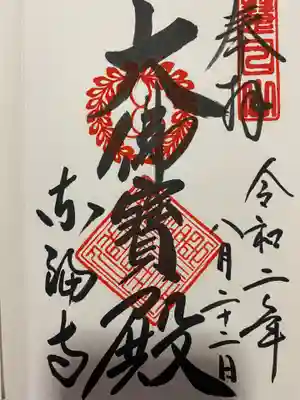 奉拝
令和二年
八月二十二日
大佛寶殿
能福寺